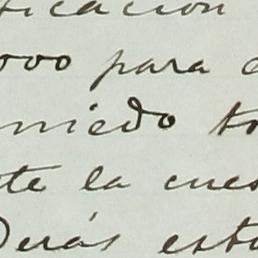 ficacion
000 para
miedo to
te la cues
Derás esta